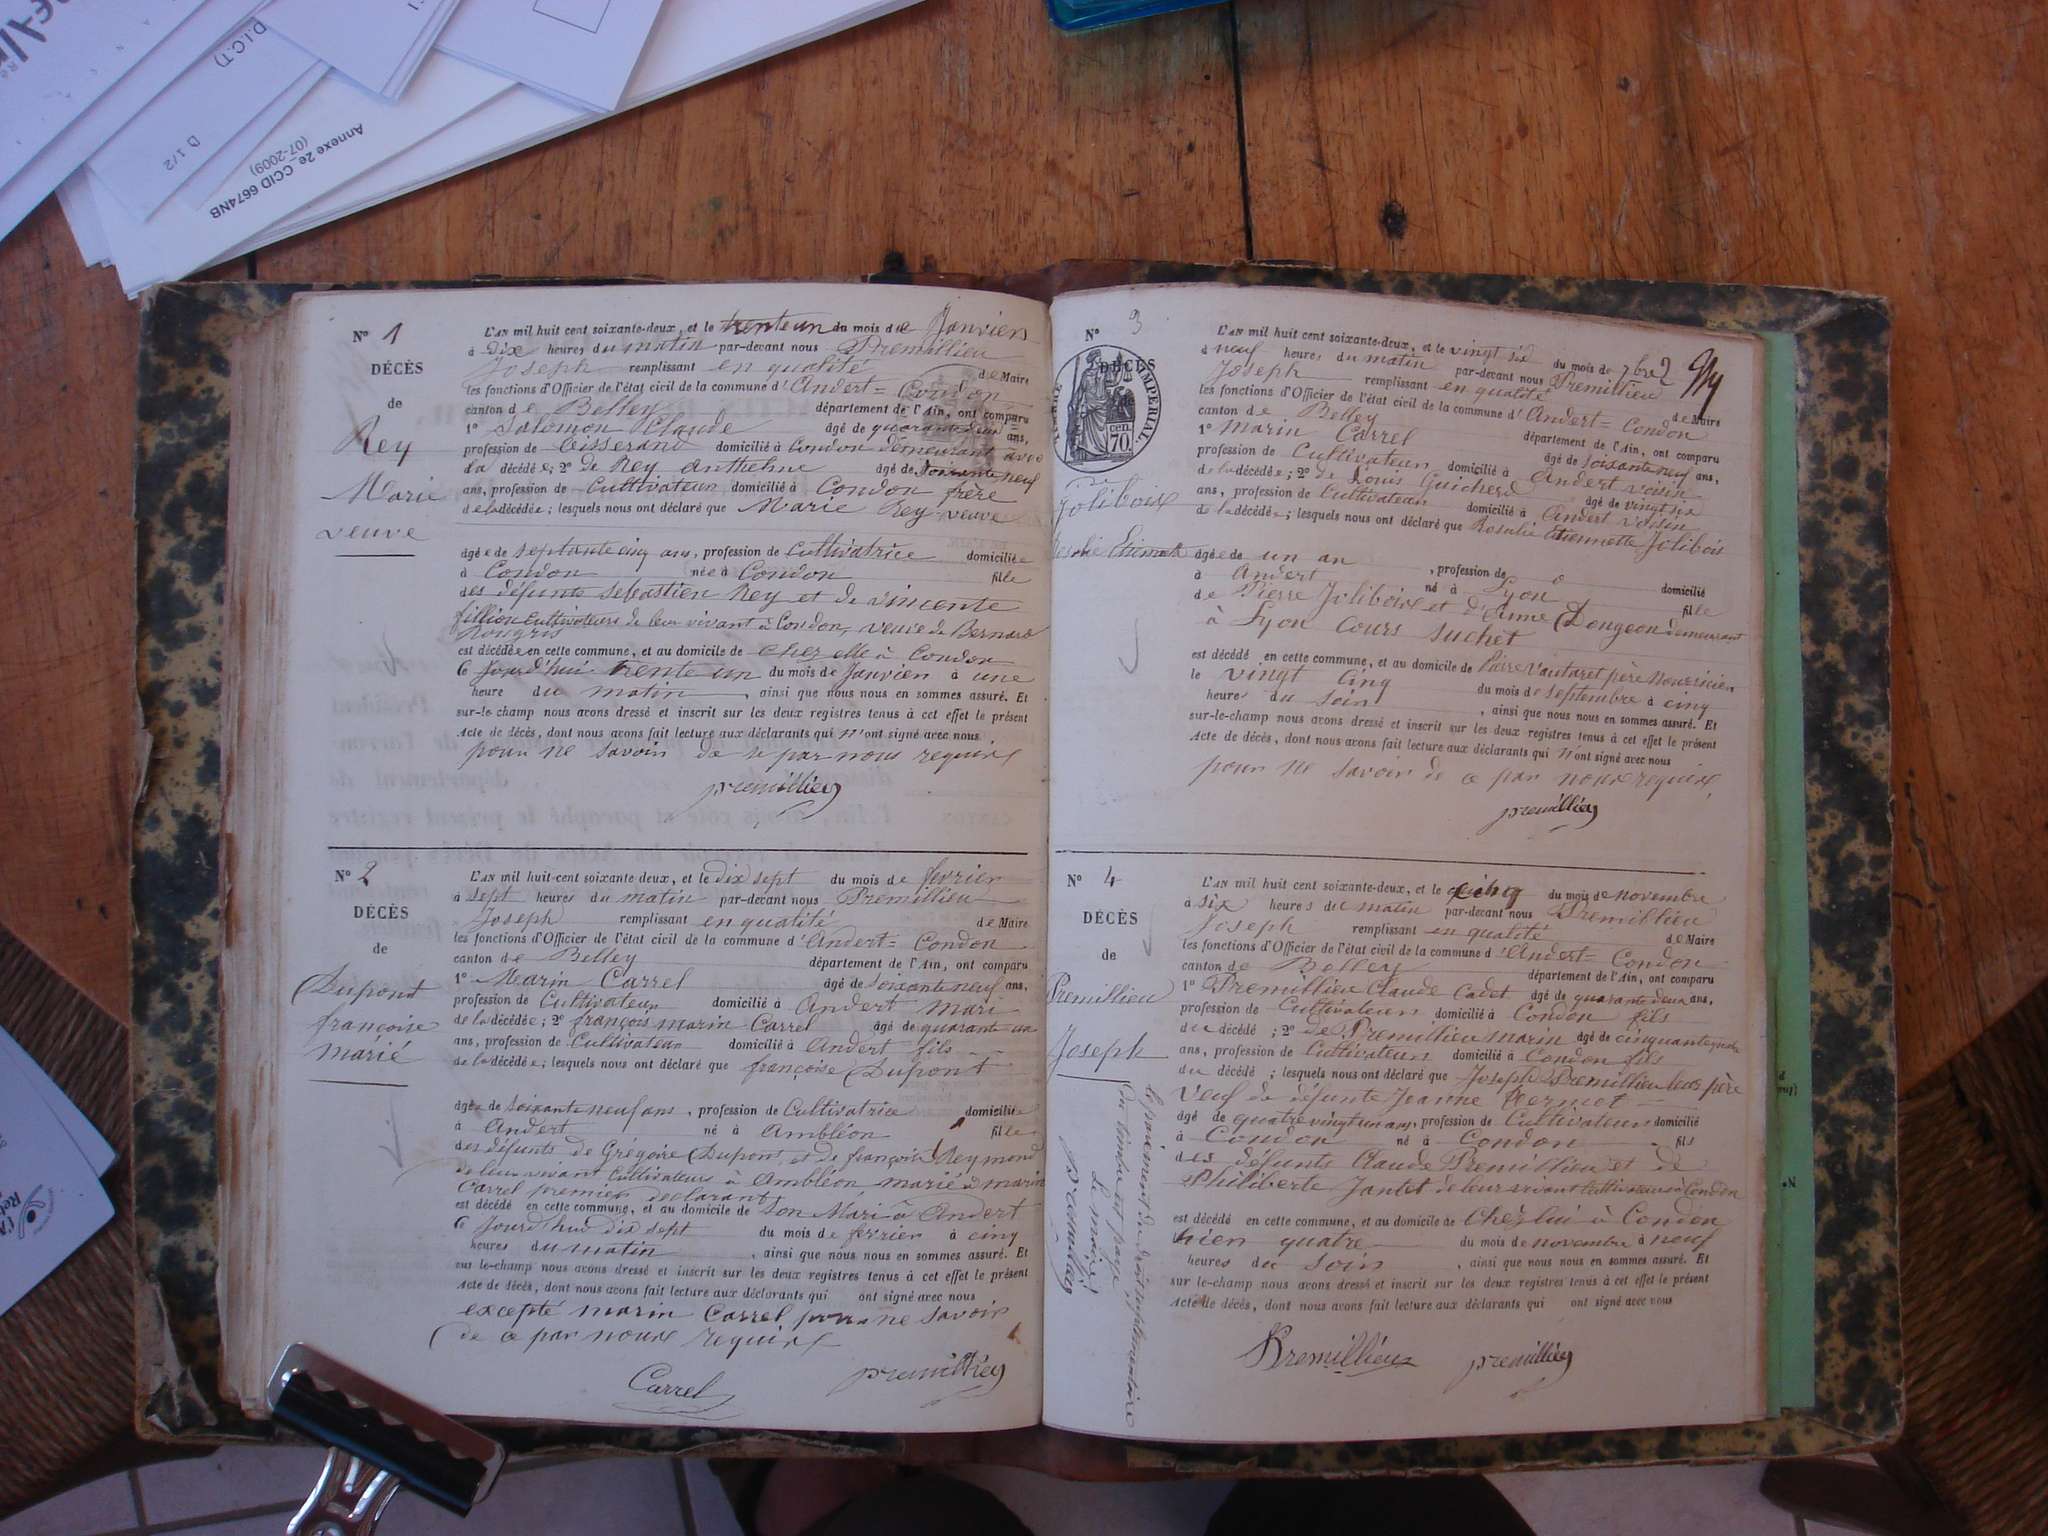 D.I.C.T)
D 1/2
Annexe 2e _ CCID 6674NB
(07-2009)
N° 1
DÉCÈS
de
Rey
Marie
veuve
L'AN mil huit cent soixante-deux, et le trente un du mois de Janvier
à dix heures du matin par-devant nous Premillieu
Joseph remplissant en qualité de Maire
les fonctions d'Officier de l'état civil de la commune d'Andert=Condon
canton de Belley département de l'Ain, ont comparu
1° Salomon Claude âgé de quarante deux ans,
profession de tisserand domicilié à Condon demeurant avec
la décédée; 2° de Rey Anthelme âgé de soixante neuf
ans, profession de Cultivateur domicilié à Condon frère
de la décédée; lesquels nous ont déclaré que Marie Rey veuve
âgée de septante cinq ans, profession de Cultivatrice domiciliée
à Condon née à Condon fille
des défunts Sebastien Rey et de vincente
fillion Cultivateurs de leur vivant à Condon, veuve de Bernard
est décédée en cette commune, et au domicile de chez elle à Condon
Ce Jourd'hui trente un du mois de Janvier à une
heure du matin, ainsi que nous nous en sommes assuré. Et
sur-le-champ nous avons dressé et inscrit sur les deux registres tenus à cet effet le présent
Acte de décès, dont nous avons fait lecture aux déclarants qui n'ont signé avec nous
pour ne savoir de ce par nous requise
premillieu
N° 2
DÉCÈS
de
Dupont
françoise
marié
L'AN mil huit cent soixante-deux, et le dix sept du mois de fevrier
à sept heures du matin par-devant nous Premillieu
Joseph remplissant en qualité de Maire
les fonctions d'Officier de l'état civil de la commune d'Andert=Condon
canton de Belley département de l'Ain, ont comparu
1° Marin Carrel âgé de soixante neuf ans,
profession de Cultivateur domicilié à Andert mari
de la décédée; 2° françois marin Carrel âgé de quarant un
ans, profession de Cultivateur domicilié à Andert fils
de la décédée; lesquels nous ont déclaré que françoise Dupont
âgée de soixante neuf ans, profession de Cultivatrice domiciliée
à Andert né à Ambléon fille
des défunts de Grégoire Dupont et de françoise Reymond
de leur vivant Cultivateurs à Ambléon marié à marin
Carrel premier declarant
est décédé en cette commune, et au domicile de Son Mari à Andert
Ce Jourd'hui dix sept du mois de fevrier à cinq
heures du matin, ainsi que nous nous en sommes assuré. Et
sur le-champ nous avons dressé et inscrit sur les deux registres tenus à cet effet le présent
Acte de décès, dont nous avons fait lecture aux déclarants qui ont signé avec nous
excepté marin Carrel pour ne savoir
de ce par nous requise
Carrel premillieu
N° 3
DÉCÈS
de
TIMBRE IMPERIAL
70 cen.
Joliboix
Rosalie Etiennette
L'AN mil huit cent soixante-deux, et le vingt six du mois de 7bre
à neuf heures du matin par-devant nous Premillieu
Joseph remplissant en qualité de Maire
les fonctions d'Officier de l'état civil de la commune d'Andert=Condon
canton de Belley département de l'Ain, ont comparu
1° Marin Carrel âgé de soixante neuf ans,
profession de Cultivateur domicilié à Andert voisin
de la décédée; 2° de Louis Guicherd âgé de vingt six
ans, profession de Cultivateur domicilié à Andert voisin
de la décédée; lesquels nous ont déclaré que Rosalie Etiennette Jolibois
âgée de un an, profession de domicilié
à Andert né à Lyon fille
de Pierre Joliboix et d'Anne Dongeon demeurant
à Lyon cours Suchet
est décédé en cette commune, et au domicile de Pierre Vautaret père nourricier
le vingt cinq du mois de septembre à cinq
heures du soir, ainsi que nous nous en sommes assuré. Et
sur-le-champ nous avons dressé et inscrit sur les deux registres tenus à cet effet le présent
Acte de décès, dont nous avons fait lecture aux déclarants qui n'ont signé avec nous
pour ne savoir de ce par nous requise,
premillieu
N° 4
DÉCÈS
de
Premillieu
Joseph
le paiement du droit supplementaire
du timbre est payé
Le maire
premillieu
L'AN mil huit cent soixante-deux, et le cinq du mois de novembre
à six heures du matin par-devant nous Premillieu
Joseph remplissant en qualité de Maire
les fonctions d'Officier de l'état civil de la commune d'Andert=Condon
canton de Belley département de l'Ain, ont comparu
1° Premillieu Claude Cadet âgé de quarante deux ans,
profession de Cultivateur domicilié à Condon fils
du décédé; 2° de Premillieu marin âgé de cinquante quatre
ans, profession de Cultivateur domicilié à Condon fils
du décédé; lesquels nous ont déclaré que Joseph Premillieu leur père
Veuf de défunte Jeanne Vermot
âgé de quatre vingt un ans, profession de Cultivateur domicilié
à Condon né à Condon fils
des défunts Claude Premillieu et de
Philiberte Jantet de leur vivant Cultivateurs à Condon
est décédé en cette commune, et au domicile de Chez lui à Condon
hier quatre du mois de novembre à neuf
heures du soir, ainsi que nous nous en sommes assuré. Et
sur-le-champ nous avons dressé et inscrit sur les deux registres tenus à cet effet le présent
Acte de décès, dont nous avons fait lecture aux déclarants qui ont signé avec nous
Premillieux premillieu